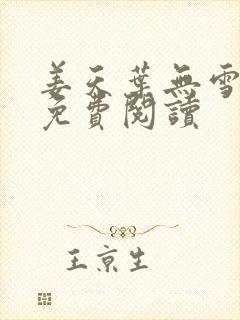 姜天葉無雪
免費閱讀
王京生